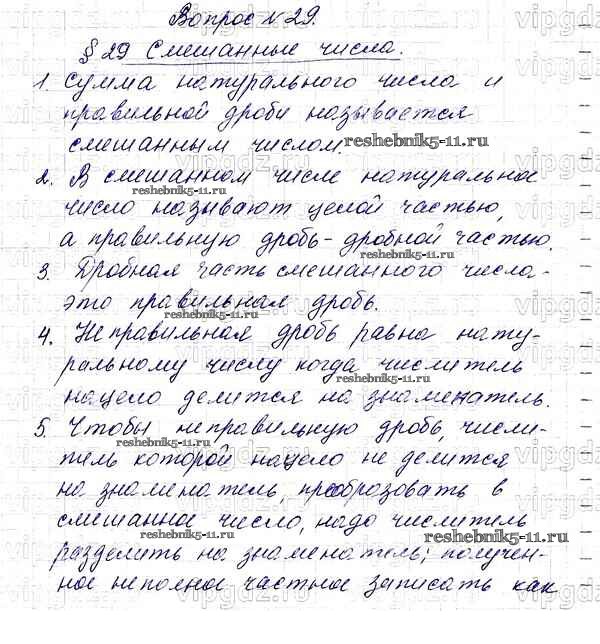 Вопрос №29.
§29 Смешанные числа.
1. Сумма натурального числа и
правильной дроби называется
смешанным числом.
reshebnik5-11.ru
2. В смешанном числе натуральное
reshebnik5-11.ru
число называют целой частью,
а правильную дробь- дробной частью.
reshebnik5-11.ru
3. Дробная часть смешанного числа-
это правильная дробь.
reshebnik5-11.ru
4. Неправильная дробь равна нату-
ральному числу когда числитель
reshebnik5-11.ru
нацело делится на знаменатель.
5. Чтобы неправильную дробь, числи-
reshebnik5-11.ru
тель которой нацело не делится
на знаменатель, преобразовать в
reshebnik5-11.ru
смешанное число, надо числитель
reshebnik5-11.ru
разделить на знаменатель; получен-
ное неполное частное записать как